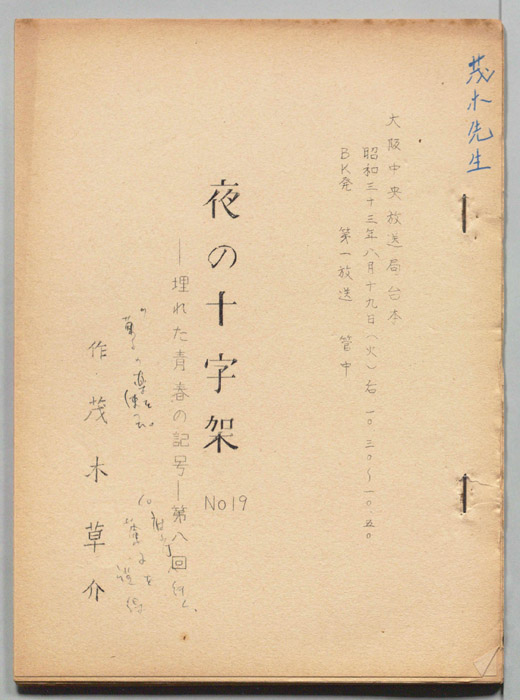 茂木先生
大阪中央放送局台本
昭和三十三年八月十九日(火)右一〇.三〇〜一〇.五〇
BK発 第一放送 管中
夜の十字架
No19
―埋れた青春の記号―第八回
作・茂木草介